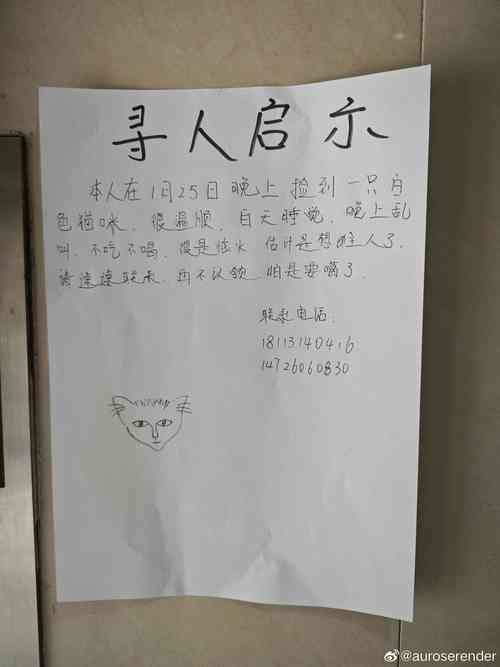 寻人启示
本人在1月25日晚上捡到一只白
色猫咪，很温顺，白天睡觉，晚上乱
叫，不吃不喝，很是恼火 估计是想主人了，
请速速联系，再不认领 怕是要嗝了，
联系电话：
18113140416
14726060830
@auroserender